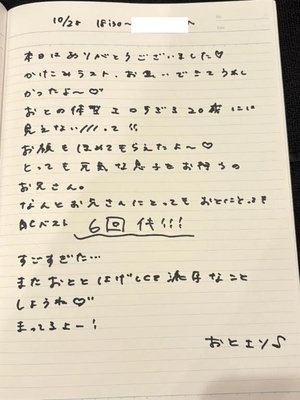 10/28 18:30〜 〜
本日はありがとうございました♡
かけこみラスト、お会いできてうれし
かったよ〜♡
おとの体型エロすぎる20歳には
見えない///って!!
お顔もほめてもらえたよ〜♡
とっても元気な息子をお持ちの
お兄さん。
なんとお兄さんにとってもおとにとっても
自己ベスト 6回 代!!!
すごすぎた…
またおととはげしくて濃厚なこと
しようね♡
まってるよー!
おとエリ♪